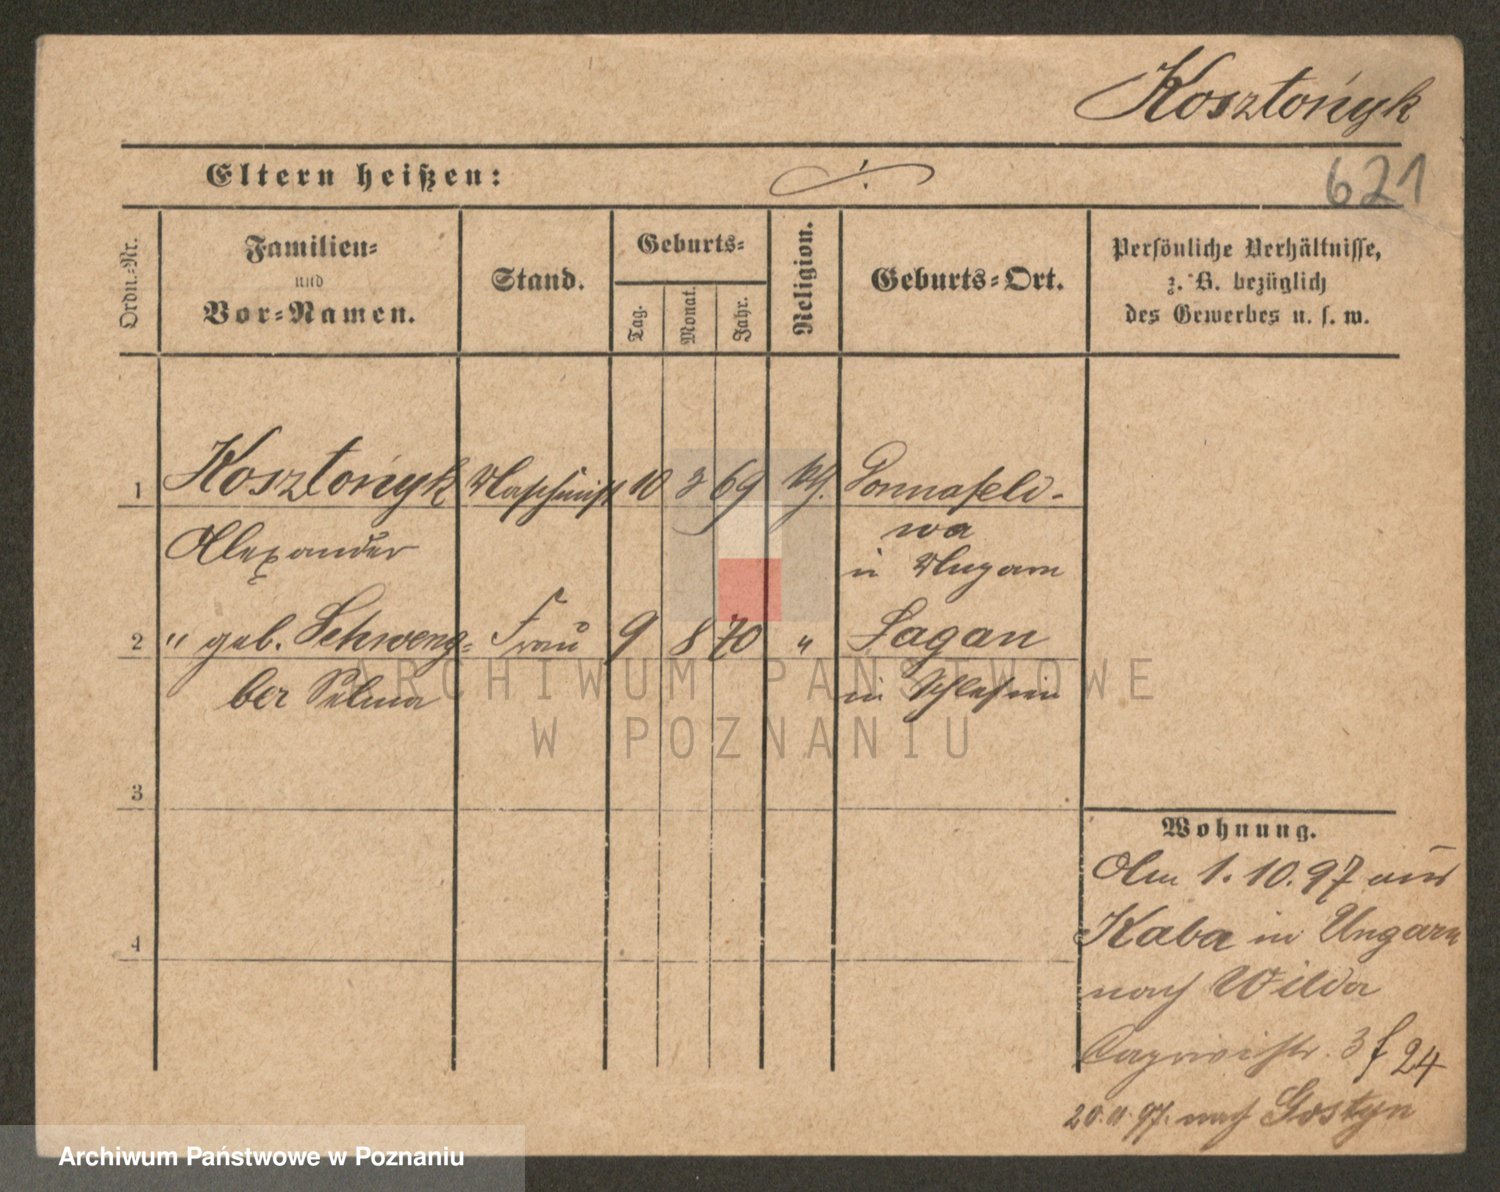 Kosztońyk
621
Eltern heißen:
Ordn.-Nr.
Familien-
und
Vor-Namen.
Stand.
Geburts-
Tag.
Monat.
Jahr.
Religion.
Geburts-Ort.
Persönliche Verhältnisse,
z. B. bezüglich
des Gewerbes u. s. w.
1 Kosztońyk Maschinist 10 3 69 kth.
Alexander
wa
in Ungarn
2 " geb. Schweng- Frau 9 8 70 " Sagan
ber Selma in Schlesien
3
4
Wohnung.
Am 1. 10. 97 aus
Kaba in Ungarn
nach Wilda
3 f 24
nach Gostyn
ARCHIWUM PAŃSTWOWE
W POZNANIU
Archiwum Państwowe w Poznaniu